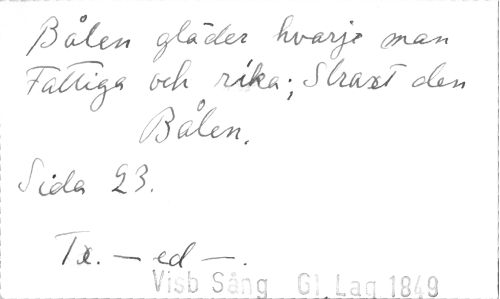 Bålen gläder hvarje man
Fattiga och rika; Straxt den
Bålen.
Sida 23.
Tx. — ed —.
Visb Sång Gl. Lag 1849